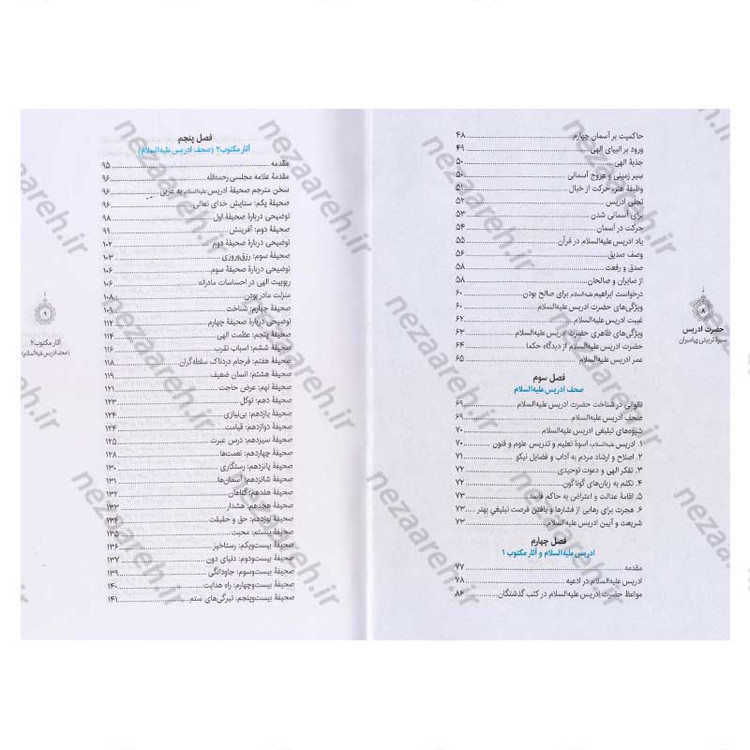 حاکمیت بر آسمان چهارم ۴۸
ورود بر انبیای الهی ۴۹
جذبهٔ الهی ۵۰
سیر زمینی و عروج آسمانی ۵۰
وظیفهٔ هنر، حرکت از خیال ۵۱
تجلی ادریس ۵۲
برای آسمانی شدن ۵۳
حرکت در آسمان ۵۴
یاد ادریس علیه‌السلام در قرآن ۵۵
وصف صدیق ۵۶
صدق و رفعت ۵۸
از صابران و صالحان ۵۸
درخواست ابراهیم علیه‌السلام برای صالح بودن ۶۰
ویژگی‌های حضرت ادریس علیه‌السلام ۶۰
غیبت ادریس علیه‌السلام ۶۲
ویژگی‌های ظاهری حضرت ادریس علیه‌السلام ۶۳
حضرت ادریس علیه‌السلام از دیدگاه حکما ۶۴
عمر ادریس علیه‌السلام ۶۵
فصل سوم
صحف ادریس علیه‌السلام
ناتوانی در شناخت حضرت ادریس علیه‌السلام ۶۹
صحف ادریس علیه‌السلام ۶۹
شیوه‌های تبلیغی ادریس علیه‌السلام ۷۰
۱. ادریس علیه‌السلام، اسوهٔ تعلیم و تدریس علوم و فنون ۷۰
۲. اصلاح و ارشاد مردم به آداب و فضایل نیکو ۷۱
۳. تفکر الهی و دعوت توحیدی ۷۲
۴. تکلم به زبان‌های گوناگون ۷۲
۵. اقامهٔ عدالت و اعتراض به حاکم فاسد ۷۳
۶. هجرت برای رهایی از فشارها و یافتن فرصت تبلیغی بهتر ۷۳
شریعت و آیین ادریس علیه‌السلام ۷۳
فصل چهارم
ادریس علیه‌السلام و آثار مکتوب ۱
مقدمه ۷۷
ادریس علیه‌السلام در ادعیه ۷۸
مواعظ حضرت ادریس علیه‌السلام در کتب گذشتگان ۸۶
۸
حضرت ادریس
سیرهٔ تربیتی پیامبران
فصل پنجم
آثار مکتوب ۲ (صحف ادریس علیه‌السلام)
مقدمه ۹۵
مقدمهٔ علامه مجلسی رحمه‌الله ۹۶
سخن مترجم صحیفهٔ ادریس علیه‌السلام به عربی ۹۶
صحیفهٔ یکم: ستایش خدای تعالی ۹۶
توضیحی دربارهٔ صحیفهٔ اول ۹۸
صحیفهٔ دوم: آفرینش ۹۹
توضیحی دربارهٔ صحیفهٔ دوم ۱۰۲
صحیفهٔ سوم: رزق‌وروزی ۱۰۳
توضیحی دربارهٔ صحیفهٔ سوم ۱۰۶
ربوبیت الهی در احساسات مادرانه ۱۰۶
منزلت مادر بودن ۱۰۸
صحیفهٔ چهارم: شناخت ۱۰۹
توضیحی دربارهٔ صحیفهٔ چهارم ۱۱۲
صحیفهٔ پنجم: عظمت الهی ۱۱۴
صحیفهٔ ششم: اسباب تقرب ۱۱۶
صحیفهٔ هفتم: فرجام دردناک سلطه‌گران ۱۱۸
صحیفهٔ هشتم: انسان ضعیف ۱۱۹
صحیفهٔ نهم: عرض حاجت ۱۲۱
صحیفهٔ دهم: توکل ۱۲۳
صحیفهٔ یازدهم: بی‌نیازی ۱۲۴
صحیفهٔ دوازدهم: قیامت ۱۲۴
صحیفهٔ سیزدهم: درس عبرت ۱۲۵
صحیفهٔ چهاردهم: نعمت‌ها ۱۲۸
صحیفهٔ پانزدهم: رستگاری ۱۳۰
صحیفهٔ شانزدهم: آسمان‌ها ۱۳۱
صحیفهٔ هفدهم: گناهان ۱۳۲
صحیفهٔ هجدهم: هشدار ۱۳۳
صحیفهٔ نوزدهم: حق و حقیقت ۱۳۴
صحیفهٔ بیستم: محبت ۱۳۵
صحیفهٔ بیست‌ویکم: رستاخیز ۱۳۶
صحیفهٔ بیست‌ودوم: دنیای دون ۱۳۷
صحیفهٔ بیست‌وسوم: جاودانگی ۱۳۹
صحیفهٔ بیست‌وچهارم: راه هدایت ۱۴۰
صحیفهٔ بیست‌وپنجم: تیرگی‌های ستم ۱۴۱
۹
آثار مکتوب ۲
(صحف ادریس علیه‌السلام)
nezaareh.ir